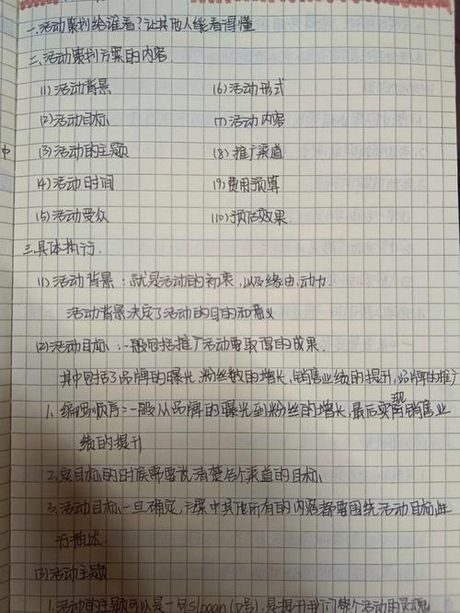 一、活动策划给谁看？让其他人能看得懂
二、活动策划方案的内容
(1)活动背景 (6)活动形式
(2)活动目标 (7)活动内容
(3)活动的主题 (8)推广渠道
(4)活动时间 (9)费用预算
(5)活动受众 (10)预估效果
三、具体执行
(1)活动背景：就是活动的初衷，以及缘由、动力
活动背景决定了活动的目的和意义
(2)活动目标：一般包括推广活动要取得的成果.
其中包括了品牌的曝光、粉丝数的增长、销售业绩的提升、品牌的推广
1、编写顺序：一般从品牌的曝光到粉丝的增长、最后实现销售业
绩的提升
2、定目标的时候需要说清楚各个渠道的目标
3、活动目标一旦确定，方案中其他所有的内容都要围绕活动目标进
行描述.
(3)活动主题
1、活动的主题可以是一句slogan(口号)，是